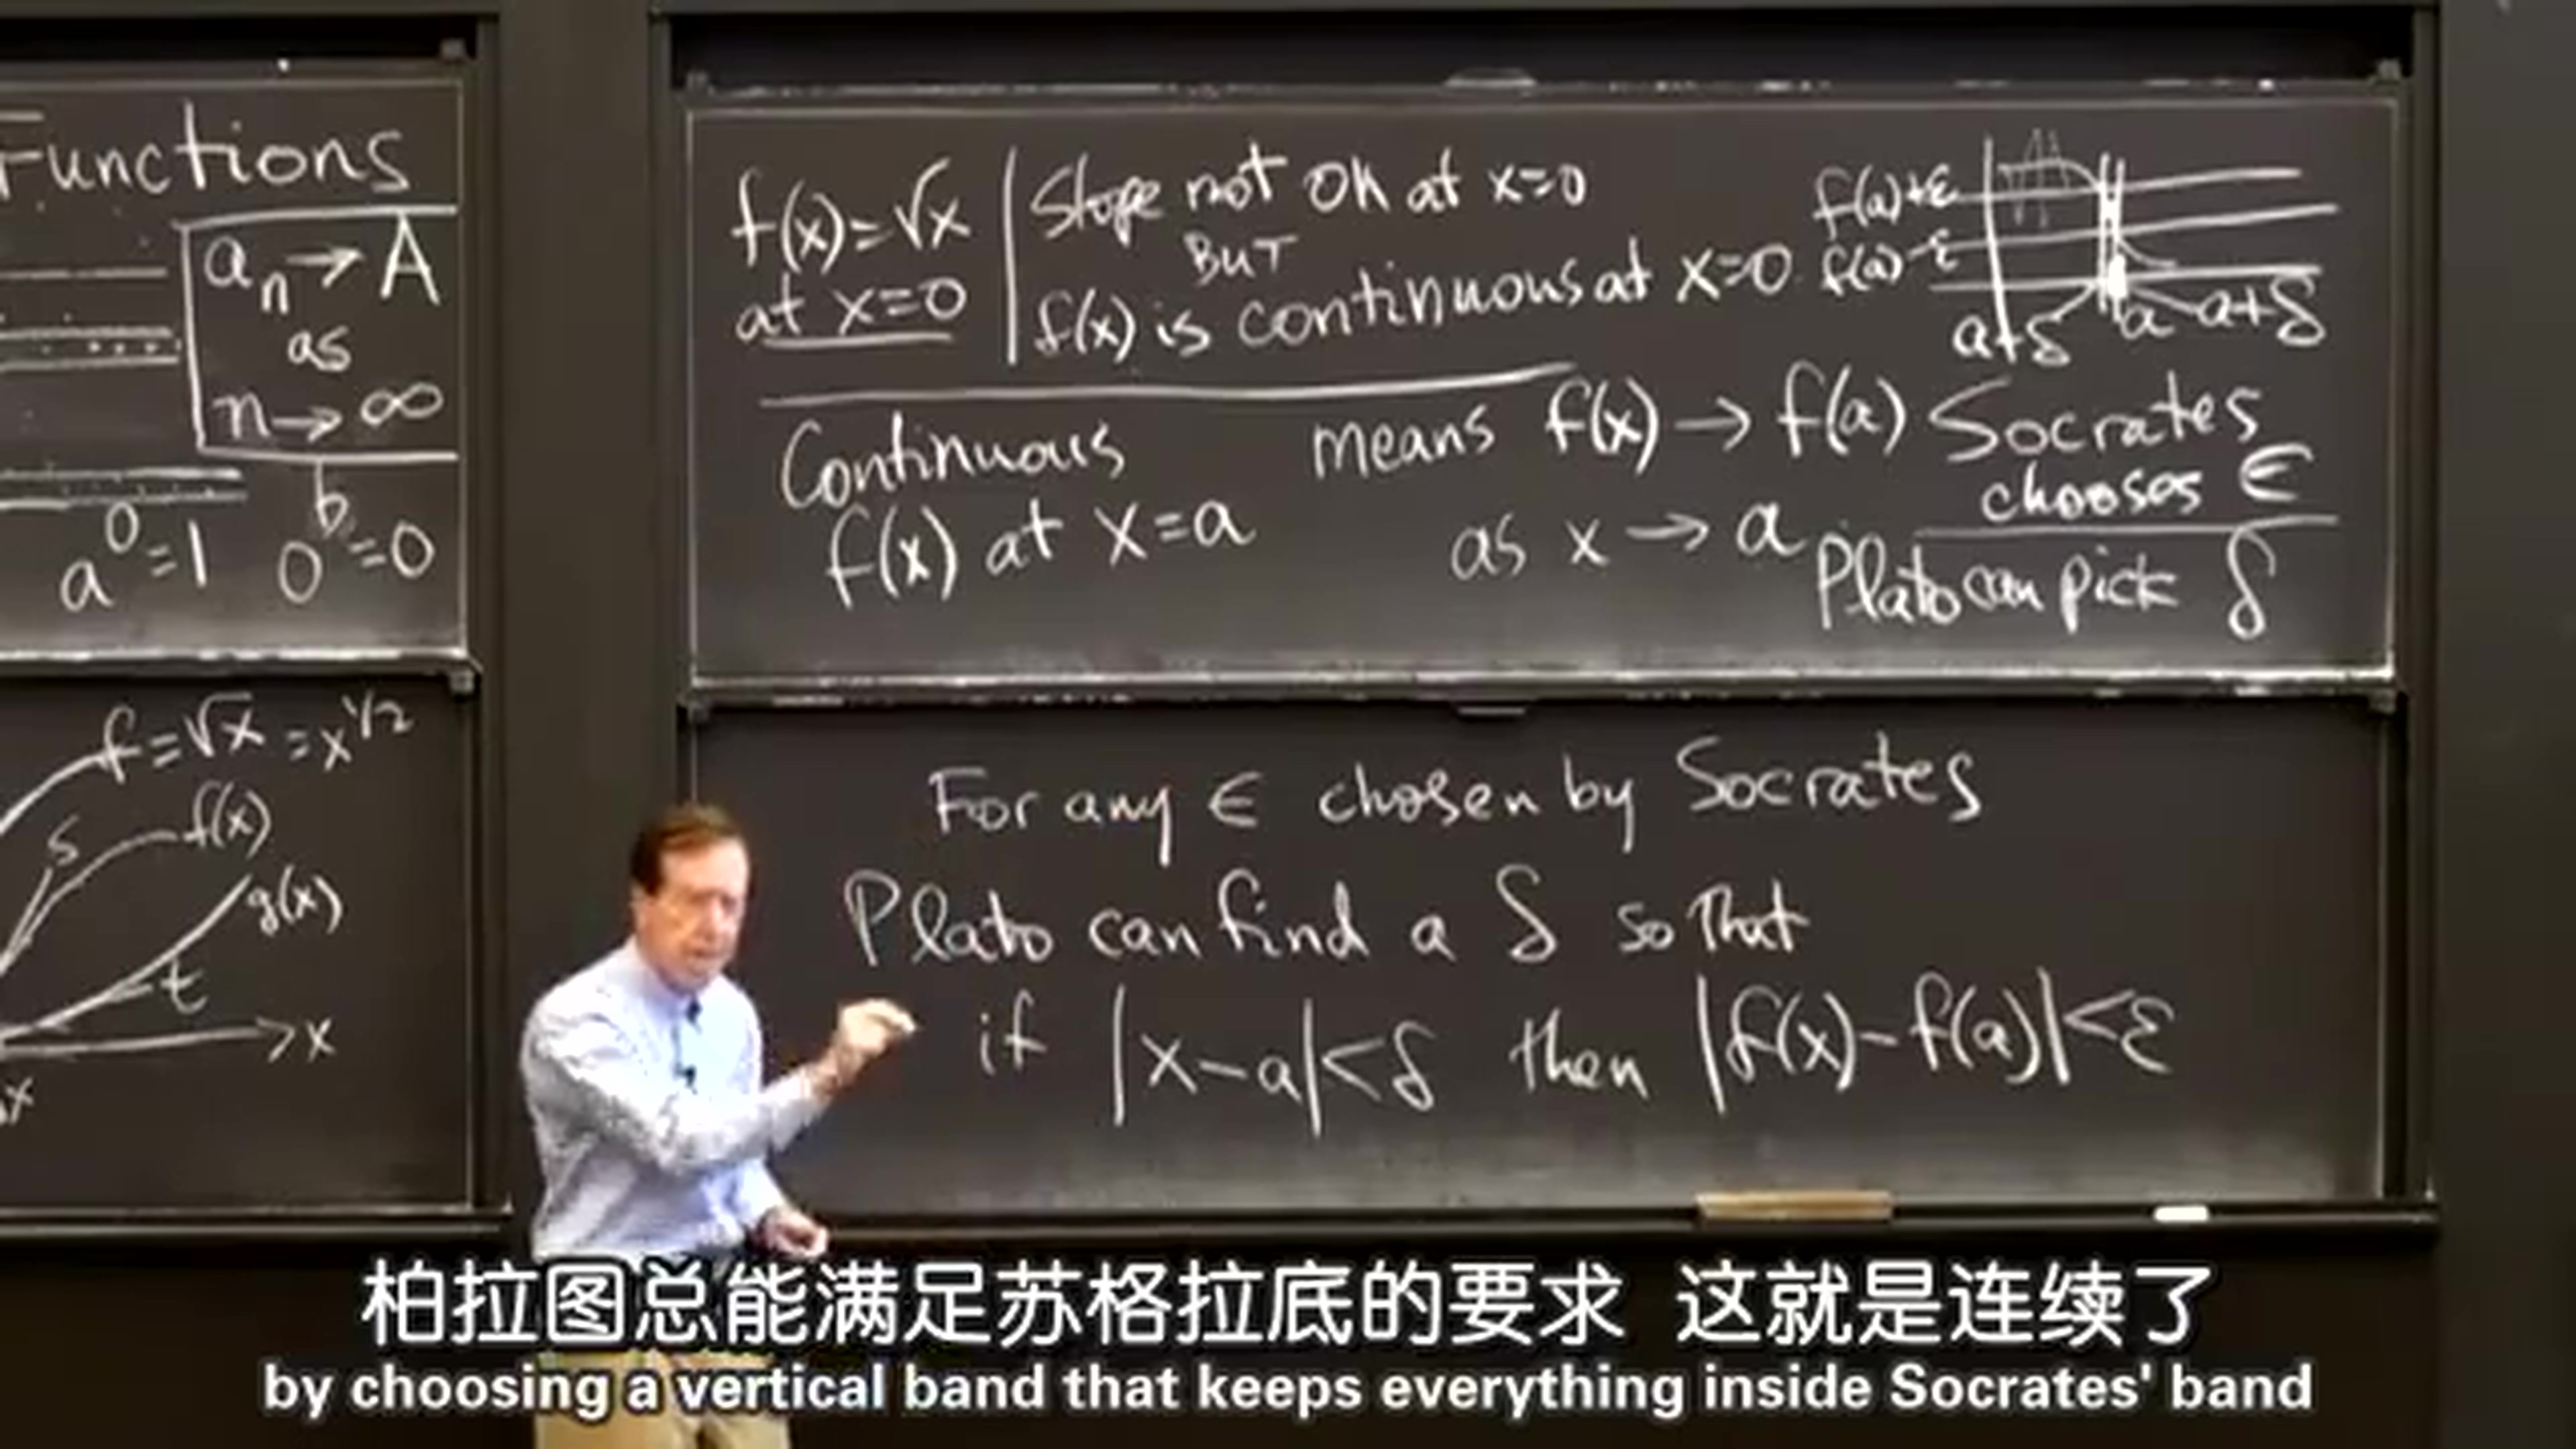 Functions
aₙ → A
as
n → ∞
a⁰ = 1 0ᵇ = 0
f = √x = x^1/2
s f(x)
g(x)
t
x
x
f(x) = √x
at x=0
Slope not OK at x=0
BUT
f(x) is continuous at x=0
f(a)+ε
f(a)-ε
a+δ a a+δ
Continuous means f(x) → f(a)
f(x) at x=a as x → a
Socrates
chooses ε
Plato can pick δ
For any ε chosen by Socrates
Plato can find a δ so that
if |x-a|<δ then |f(x)-f(a)|<ε
柏拉图总能满足苏格拉底的要求 这就是连续了
by choosing a vertical band that keeps everything inside Socrates' band